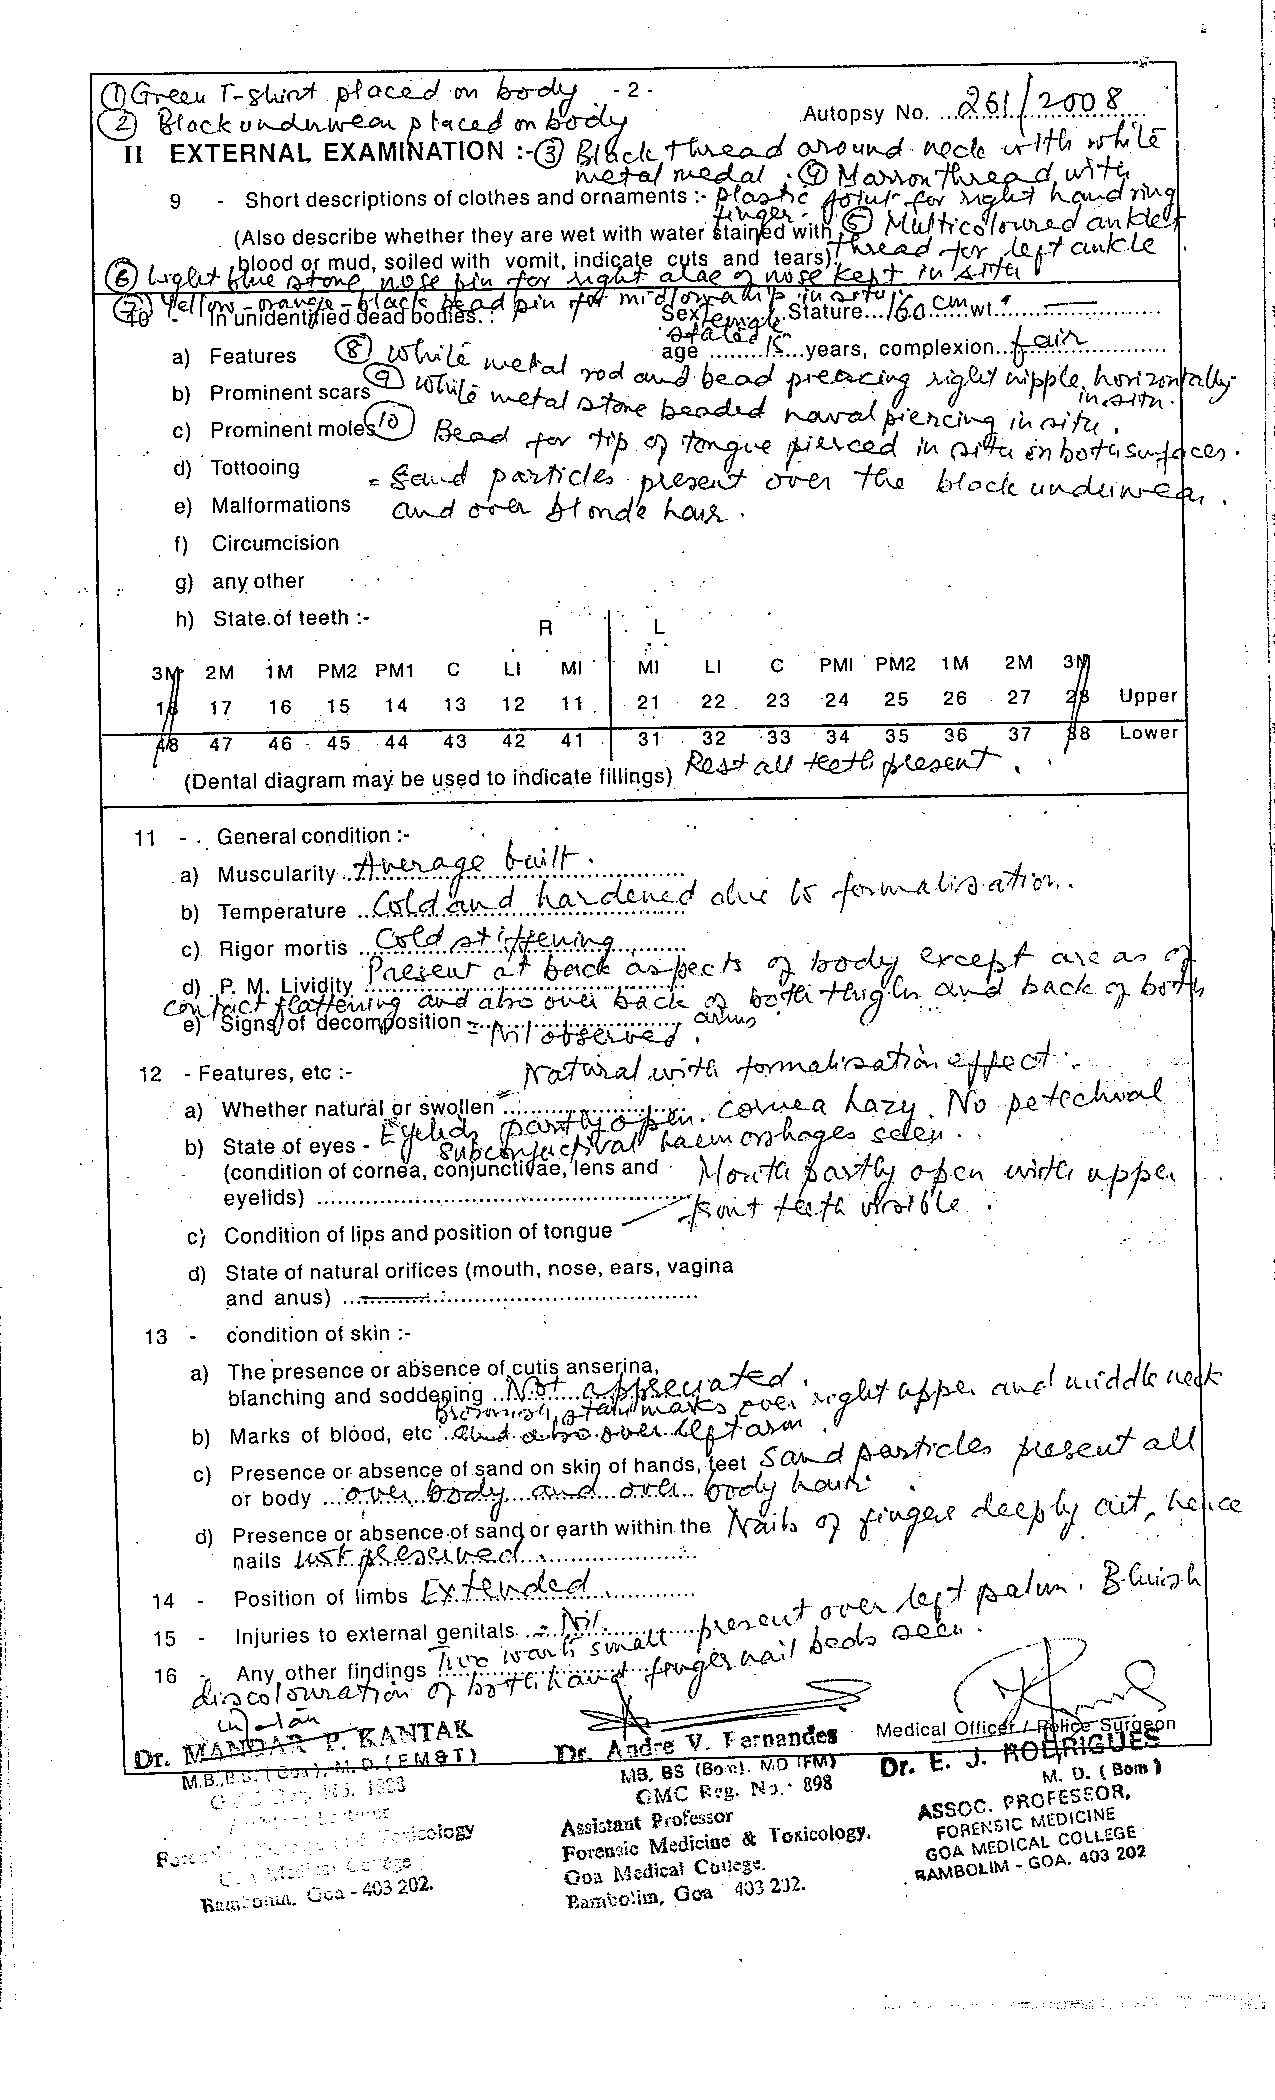 ① Green T-shirt placed on body - 2 -
Autopsy No. 261/2008
② Black underwear placed on body
II EXTERNAL EXAMINATION :- ③ Black thread around neck with white
metal medal. ④ Marron thread with
9 - Short descriptions of clothes and ornaments :- plastic joint for right hand ring
finger. ⑤ Multicoloured anklet
(Also describe whether they are wet with water stained with
thread for left ankle
blood or mud, soiled with vomit, indicate cuts and tears)
⑥ Light blue stone nose pin for right alae of nose kept in situ
⑦ Yellow-orange-black bead pin for midlower lip in situ.
10 - In unidentified dead bodies. : Sex female Stature 160 cm wt.
a) Features stated age 15 years, complexion fair
⑧ White metal rod and bead piercing right nipple, horizontally
in situ.
b) Prominent scars ⑨ White metal stone beaded naval piercing in situ.
c) Prominent moles ⑩ Bead for tip of tongue pierced in situ on both surfaces.
d) Tottooing = Sand particles present over the black underwear,
e) Malformations and over blonde hair.
f) Circumcision
g) any other
h) State of teeth :-
R L
3M 2M 1M PM2 PM1 C LI MI MI LI C PMI PM2 1M 2M 3M
18 17 16 15 14 13 12 11 21 22 23 24 25 26 27 28 Upper
48 47 46 45 44 43 42 41 31 32 33 34 35 36 37 38 Lower
(Dental diagram may be used to indicate fillings) Rest all teeth present.
11 - General condition :-
a) Muscularity Average built.
b) Temperature Cold and hardened due to formalisation.
c) Rigor mortis Cold stiffening
d) P. M. Lividity Present at back aspects of body except areas of
contact flattening and also over back of both thighs and back of both
arms
e) Signs of decomposition = Nil observed.
12 - Features, etc :-
a) Whether natural or swollen = Natural with formalisation effect.
b) State of eyes - Eyelids partly open. Cornea hazy. No petechial
subconjuctival haemorrhages seen.
(condition of cornea, conjunctivae, lens and
eyelids)
c) Condition of lips and position of tongue Mouth partly open with upper
front teeth visible.
d) State of natural orifices (mouth, nose, ears, vagina
and anus)
13 - condition of skin :-
a) The presence or absence of cutis anserina,
blanching and soddening Not appreciated.
b) Marks of blood, etc Brownish stain marks over right upper and middle neck
and also over left arm.
c) Presence or absence of sand on skin of hands, feet Sand particles present all
or body over body and over body hair.
d) Presence or absence of sand or earth within the Nails of fingers deeply cut, hence
nails not preserved
14 - Position of limbs Extended
15 - Injuries to external genitals = Nil.
16 - Any other findings Two warts small present over left palm. Bluish
discolouration of both hand finger nail beds seen.
Dr. MANDAR P. KANTAK
M.B.,B.S. (Goa), M.D. (FM&T)
Goa Medical College
Bambolim, Goa - 403 202.
Dr. Andre V. Fernandes
MB. BS (Bom). MD (FM)
GMC Reg. No. 898
Assistant Professor
Forensic Medicine & Toxicology.
Goa Medical College.
Bambolim, Goa 403 202.
Medical Officer / Police Surgeon
Dr. E. J. RODRIGUES
M. D. (Bom)
ASSOC. PROFESSOR,
FORENSIC MEDICINE
GOA MEDICAL COLLEGE
BAMBOLIM - GOA. 403 202